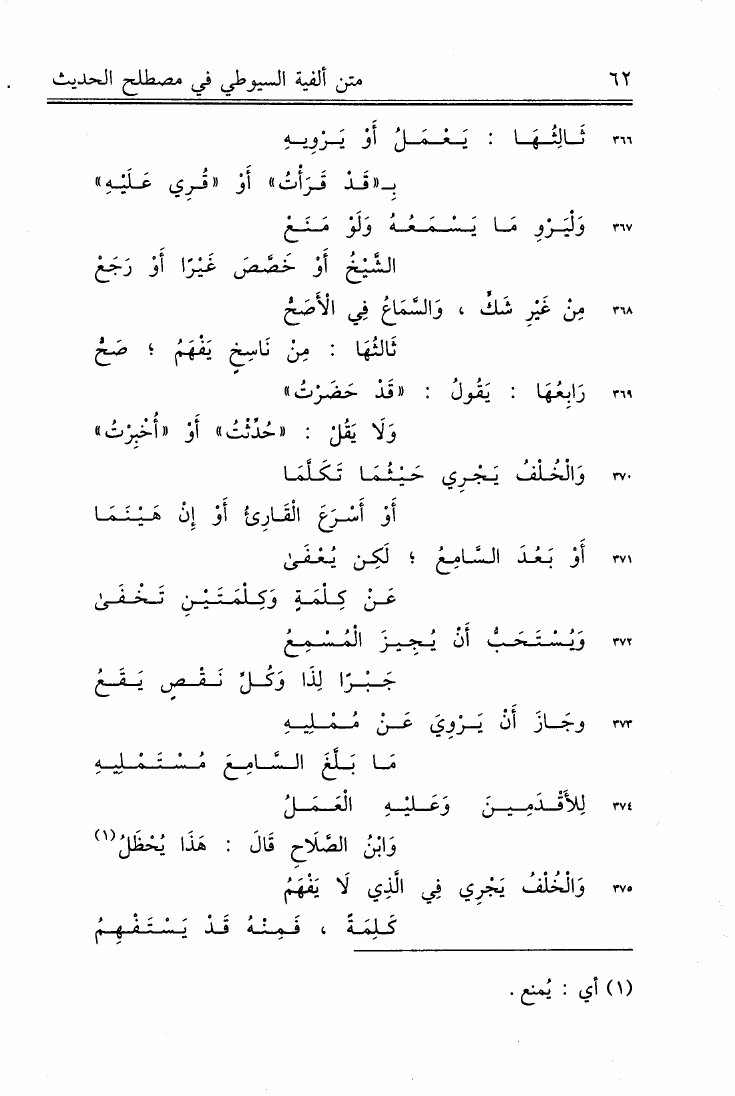 ٦٢ متن ألفية السيوطي في مصطلح الحديث
٣٦٦ ثَالِثُهَا : يَعْمَلُ أَوْ يَرْوِيهِ
بِـ«قَدْ قَرَأْتُ» أَوْ «قُرِي عَلَيْهِ»
٣٦٧ وَلْيَرْوِ مَا يَسْمَعُهُ وَلَوْ مَنَعْ
الشَّيْخُ أَوْ خَصَّصَ غَيْرًا أَوْ رَجَعْ
٣٦٨ مِنْ غَيْرِ شَكٍّ ، وَالسَّمَاعُ فِي الْأَصَحّْ
ثَالثُهَا : مِنْ نَاسِخٍ يَفْهَمُ ؛ صَحّْ
٣٦٩ رَابِعُهَا : يَقُولُ : «قَدْ حَضَرْتُ»
وَلَا يَقُلْ : «حُدِّثْتُ» أَوْ «أُخْبِرْتُ»
٣٧٠ وَالْخُلْفُ يَجْرِي حَيْثُمَا تَكَلَّمَا
أَوْ أَسْرَعَ الْقَارِئُ أَوْ إِنْ هَيْنَمَا
٣٧١ أَوْ بَعُدَ السَّامِعُ ؛ لَكِن يُعْفَىٰ
عَنْ كِلْمَةٍ وَكِلْمَتَيْنِ تَخْفَىٰ
٣٧٢ وَيُسْتَحَبُّ أَنْ يُجِيزَ الْمُسْمِعُ
جَبْرًا لِذَا وَكُلِّ نَقْصٍ يَقَعُ
٣٧٣ وجَازَ أَنْ يَرْوِيَ عَنْ مُمْلِيهِ
مَا بَلَّغَ السَّامِعَ مُسْتَمْلِيهِ
٣٧٤ لِلأَقْدَمِينَ وَعَلَيْهِ الْعَمَلُ
وَابْنُ الصَّلَاحِ قَالَ : هَذَا يُحْظَلُ(١)
٣٧٥ وَالْخُلْفُ يَجْرِي فِي الَّذِي لَا يَفْهَمُ
كَلِمَةً ، فَمِنْهُ قَدْ يَسْتَفْهِمُ
(١) أي : يُمنع .